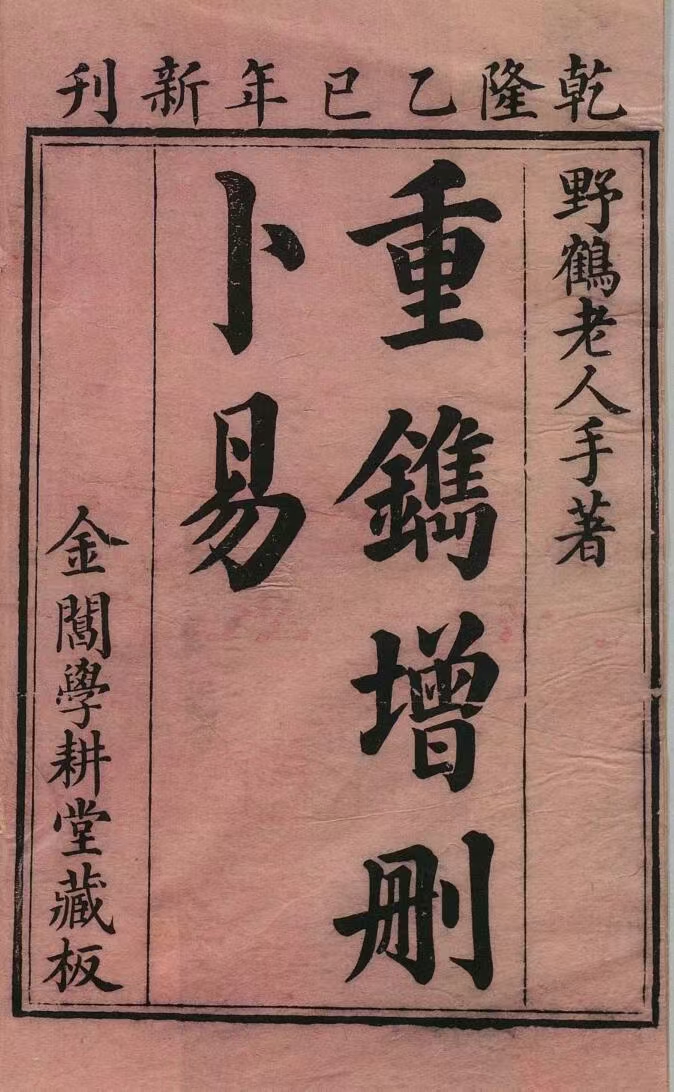 乾隆乙巳年新刊
野鶴老人手著
重鐫增刪
卜易
金閶學耕堂藏板